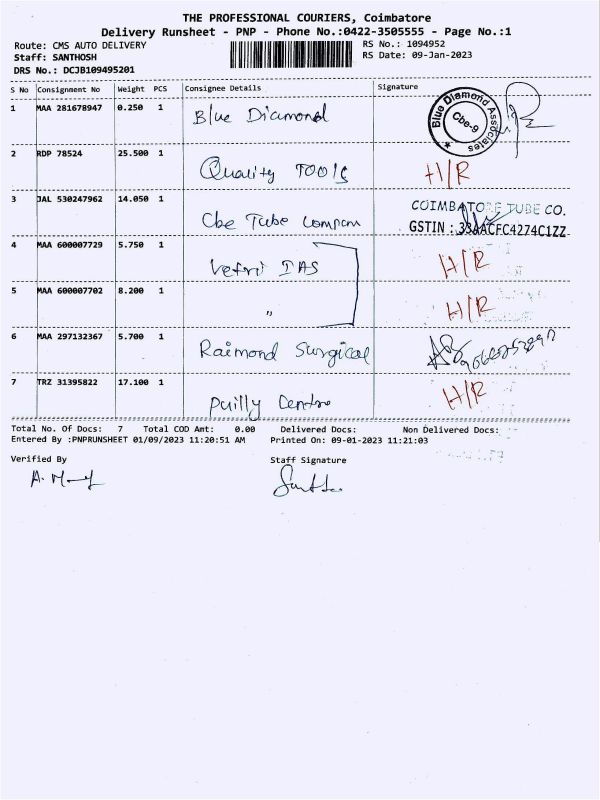 THE PROFESSIONAL COURIERS, Coimbatore
Delivery Runsheet - PNP - Phone No.:0422-3505555 - Page No.:1
Route: CMS AUTO DELIVERY RS No.: 1094952
Staff: SANTHOSH RS Date: 09-Jan-2023
DRS No.: DCJB109495201
S No Consignment No Weight PCS Consignee Details Signature
1 MAA 281678947 0.250 1 Blue Diamond Blue Diamond Associates Cbe-9
2 RDP 78524 25.500 1 Quality TOOlS H/R
3 JAL 530247962 14.050 1 Cbe Tube COIMBATORE TUBE CO.
GSTIN : 33AACFC4274C1ZZ
4 MAA 600007729 5.750 1 Vetri IAS H/R
5 MAA 600007702 8.200 1 " H/R
6 MAA 297132367 5.700 1 Raimond Surgical
7 TRZ 31395822 17.100 1 H/R
Total No. Of Docs: 7 Total COD Amt: 0.00 Delivered Docs: Non Delivered Docs:
Entered By :PNPRUNSHEET 01/09/2023 11:20:51 AM Printed On: 09-01-2023 11:21:03
Verified By Staff Signature